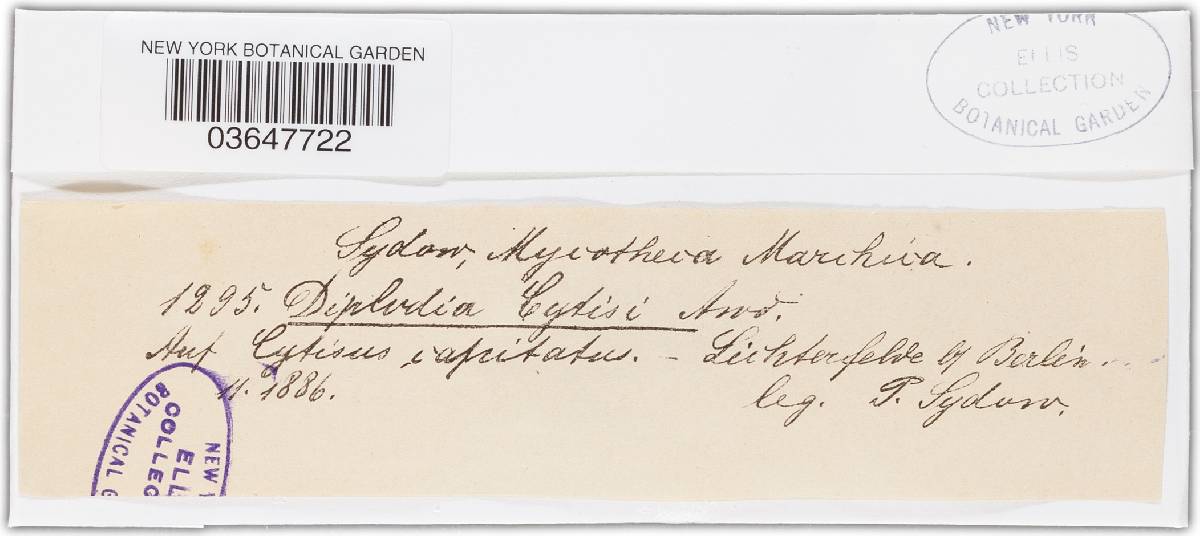 NEW YORK BOTANICAL GARDEN
03647722
NEW YORK
ELLIS
COLLECTION
BOTANICAL GARDEN
Sydow, Mycotheca Marchica.
1295. Diplodia Cytisi Awd.
Auf Cytisus capitatus. – Lichterfelde b/ Berlin.
11. 1886.
leg. P. Sydow.
NEW
ELL
COLLEC
BOTANICAL G